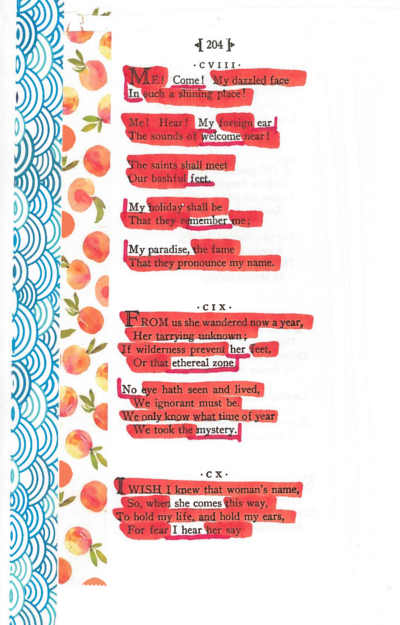 204
· CVIII ·
ME! Come! My dazzled face
In such a shining place!
Me! Hear! My foreign ear
The sounds of welcome near!
The saints shall meet
Our bashful feet.
My holiday shall be
That they remember me;
My paradise, the fame
That they pronounce my name.
· CIX ·
FROM us she wandered now a year,
Her tarrying unknown;
If wilderness prevent her feet,
Or that ethereal zone
No eye hath seen and lived,
We ignorant must be.
We only know what time of year
We took the mystery.
· CX ·
I WISH I knew that woman's name,
So, when she comes this way,
To hold my life, and hold my ears,
For fear I hear her say